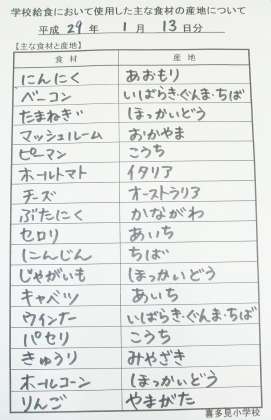 学校給食において使用した主な食材の産地について
平成 29 年 1 月 13 日分
【主な食材と産地】
食材 産地
にんにく あおもり
ベーコン いばらき・ぐんま・ちば
たまねぎ ほっかいどう
マッシュルーム おかやま
ピーマン こうち
ホールトマト イタリア
チーズ オーストラリア
ぶたにく かながわ
セロリ あいち
にんじん ちば
じゃがいも ほっかいどう
キャベツ あいち
ウインナー いばらき・ぐんま・ちば
パセリ こうち
きゅうり みやざき
ホールコーン ほっかいどう
りんご やまがた
喜多見小学校